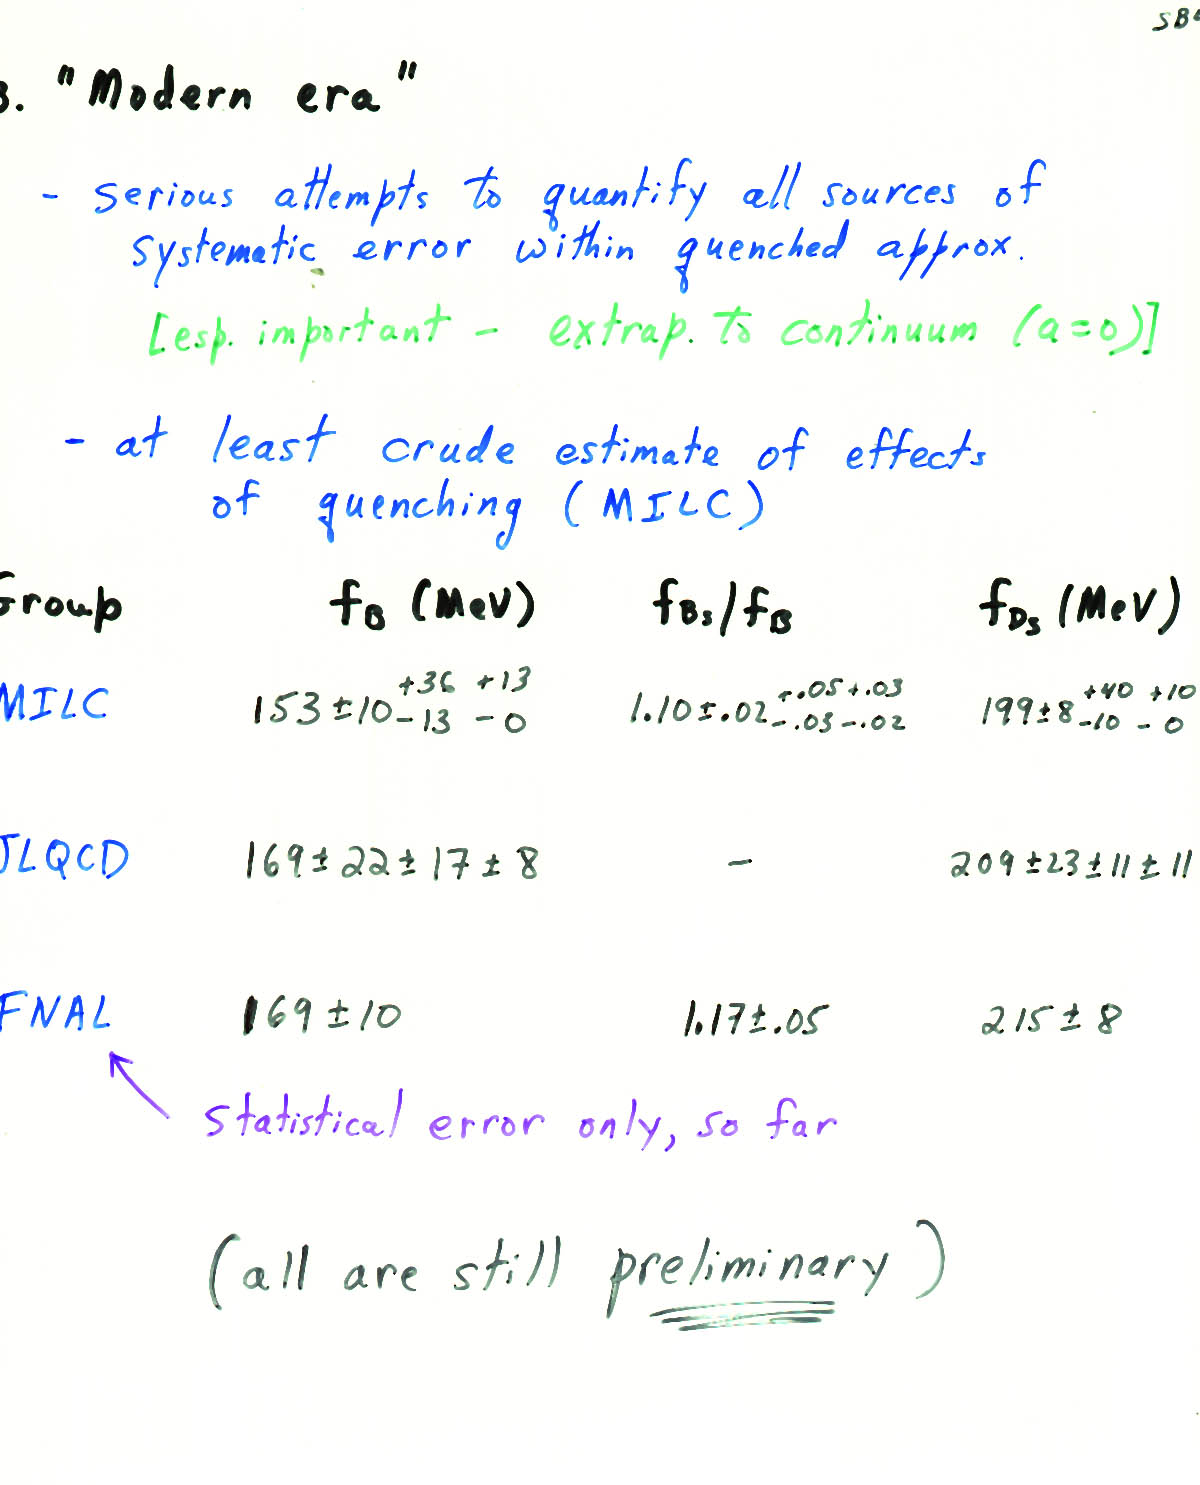 3. "Modern era"
- serious attempts to quantify all sources of
systematic error within quenched approx.
[esp. important - extrap. to continuum (a=0)]
- at least crude estimate of effects
of quenching (MILC)
Group f_B (MeV) f_Bs/f_B f_Ds (MeV)
MILC 153 ± 10 +36 -13 +13 -0 1.10 ± .02 +.05 -.03 +.03 -.02 199 ± 8 +40 -10 +10 -0
JLQCD 169 ± 22 ± 17 ± 8 - 209 ± 23 ± 11 ± 11
FNAL 169 ± 10 1.17 ± .05 215 ± 8
statistical error only, so far
(all are still preliminary)